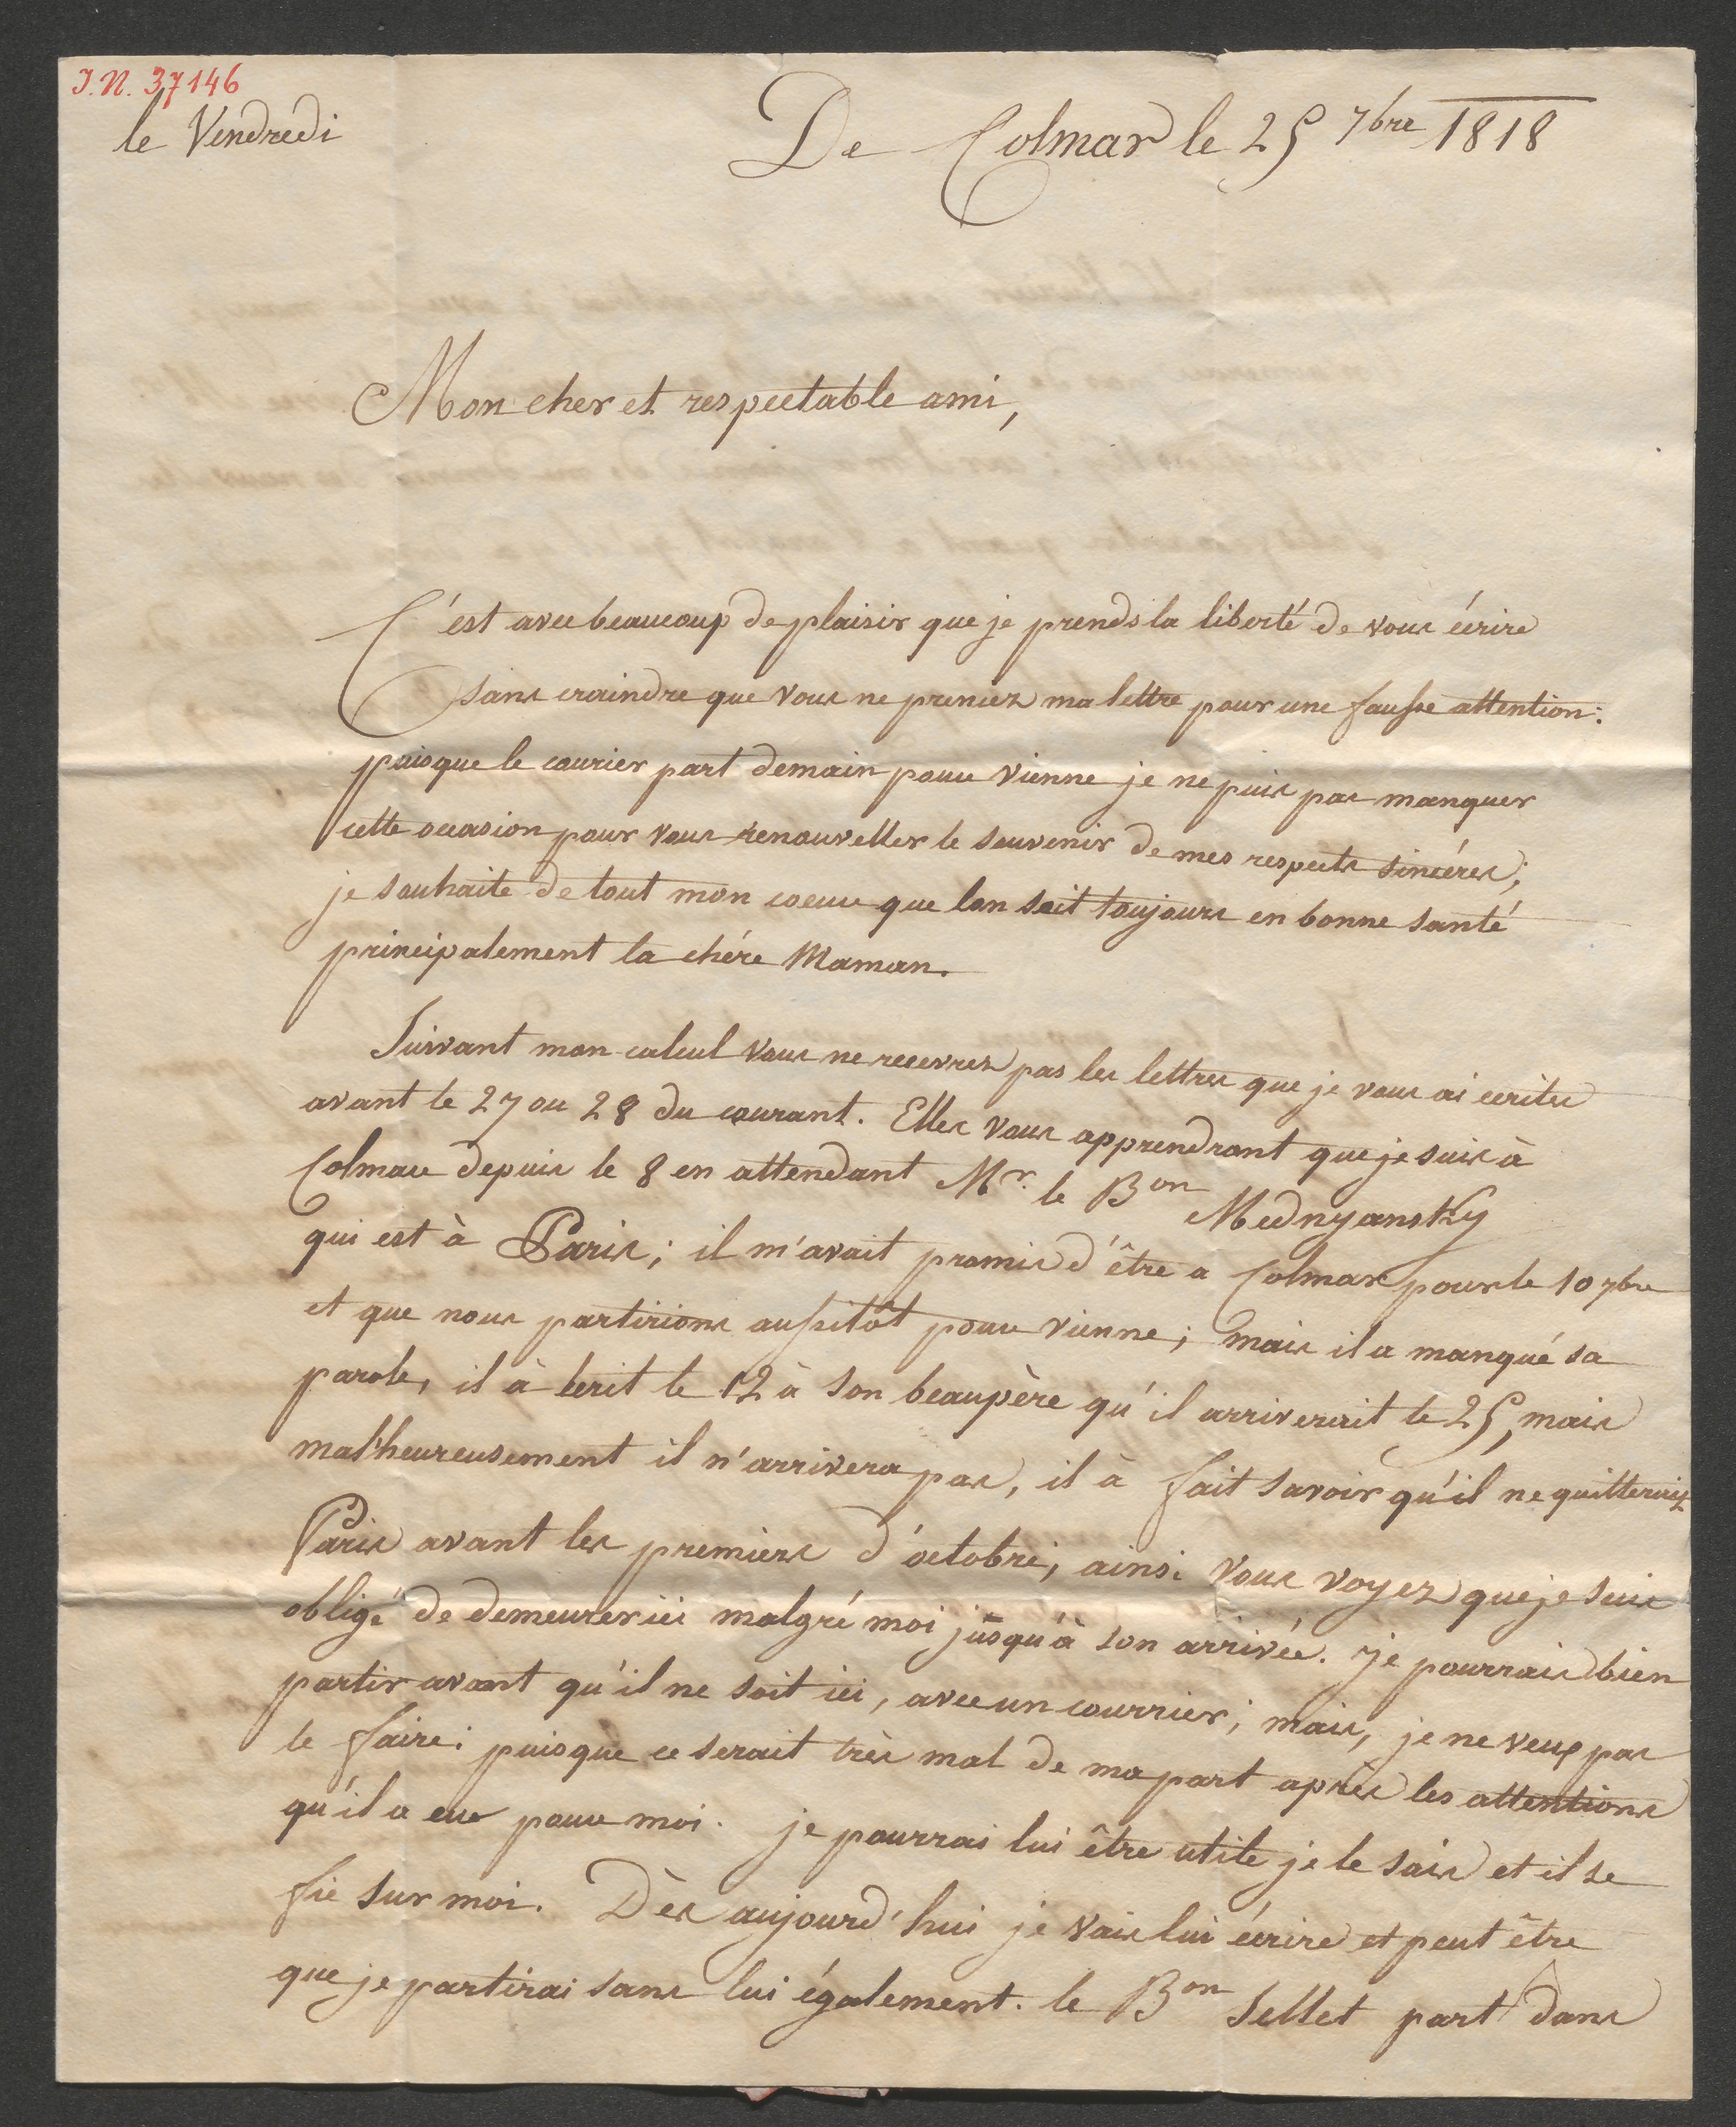 J.N. 37146
le Vendredi
De Colmar le 25 7bre 1818
Mon cher et respectable ami,
C'est avec beaucoup de plaisir que je prends la liberté de vous écrire
sans craindre que vous ne preniez ma lettre pour une fausse attention:
puisque le courier part demain pour vienne je ne puis pas manquer
cette occasion pour vous renouveller le souvenir de mes respects sincéres;
je souhaite de tout mon coeur que lon soit toujours en bonne santé
principalement la chére Maman.
Suivant mon calcul vous ne recevrez pas les lettres que je vous ai ecrites
avant le 27 ou 28 du courant. Elles vous apprendront que je suis à
Colmar depuis le 8 en attendant Mr. le Bon Mednyansky
qui est à Paris; il m'avait promis d'être a Colmar pour le 10 7bre
et que nous partirions aussitôt pour vienne; mais il a manqué sa
parole, il à écrit le 12 à son beaupère qu'il arriverait le 25, mais
malheureusement il n'arrivera pas, il à fait savoir qu'il ne quitterait
Paris avant les premiers d'octobre; ainsi vous voyez que je suis
obligé de demeurer ici malgré moi jusqu'à son arrivée. je pourrais bien
partir avant qu'il ne soit ici, avec un courrier; mais, je ne veux pas
le faire: puisque ce serait très mal de ma part après les attentions
qu'il a eue pour moi. je pourrai lui être utile je le sais et il se
fie sur moi. Dès aujourd'hui je vais lui écrire et peut être
que je partirai sans lui également. le Bon Sellet part dans